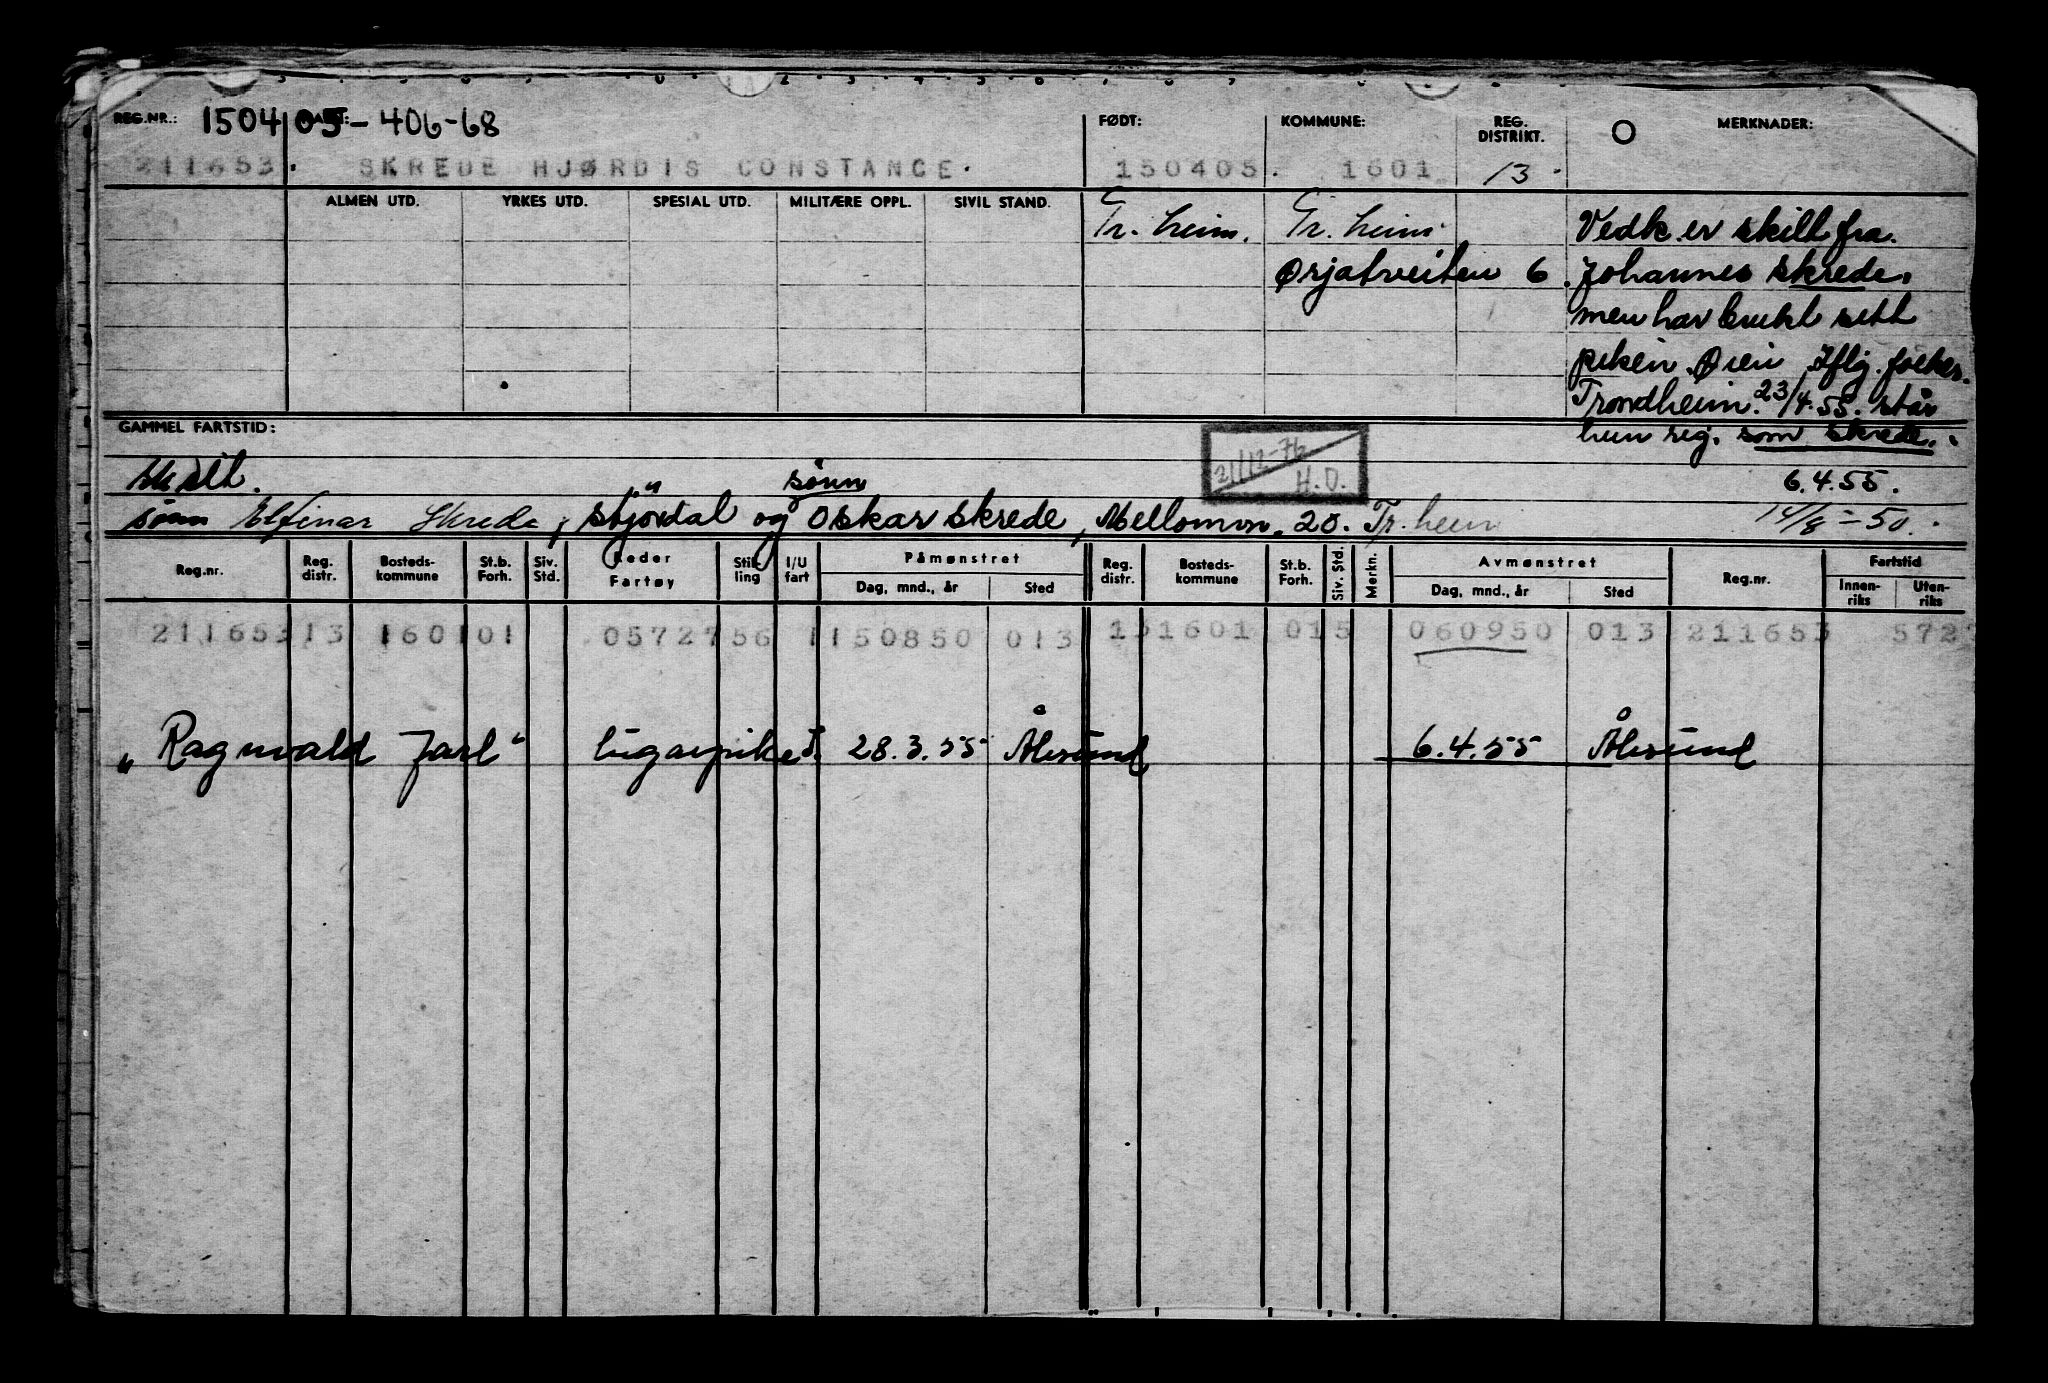 REG.NR.: 150405-406-68 FØDT: KOMMUNE: REG. DISTRIKT. MERKNADER:
211653. SKREDE HJØRDIS CONSTANCE. 150405. 1601 13
ALMEN UTD. YRKES UTD. SPESIAL UTD. MILITÆRE OPPL. SIVIL STAND. Tr. heim. Tr. heim. Vedk. er skilt fra
Ørjatveiten 6. Johannes Skrede,
men har brukt sitt
piken. Øien Iflg. folker.
Trondheim 23/4.55. står
GAMMEL FARTSTID: hun reg. som Skrede.
21/12-76 H.O.
skilt. 6.4.55.
sønn Elfinar Skrede, Stjørdal og sønn Oskar Skrede, Mellomvn. 20. Tr. heim 14/8-50.
Reg.nr. Reg. distr. Bosteds-kommune St.b. Forh. Siv. Std. Reder Fartøy Stilling I/U fart Påmønstret Dag, mnd., år Sted Reg. distr. Bosteds-kommune St.b. Forh. Siv. Std. Merkn. Avmønstret Dag, mnd., år Sted Reg.nr. Fartstid Innen-riks Uten-riks
211653 13 1601 01 0572756 1 150850 013 13 1601 015 060950 013 211653 572
"Ragnvald Jarl" lugarpike I. 28.3.55 Ålesund 6.4.55 Ålesund